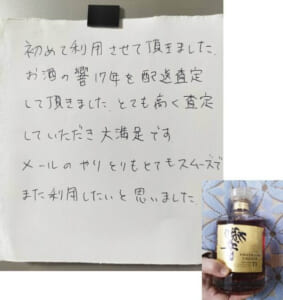 初めて利用させて頂きました。
お酒の響17年を配送査定
して頂きました。とても高く査定
していただき大満足です。
メールのやりとりもとてもスムーズで
また利用したいと思いました。
響